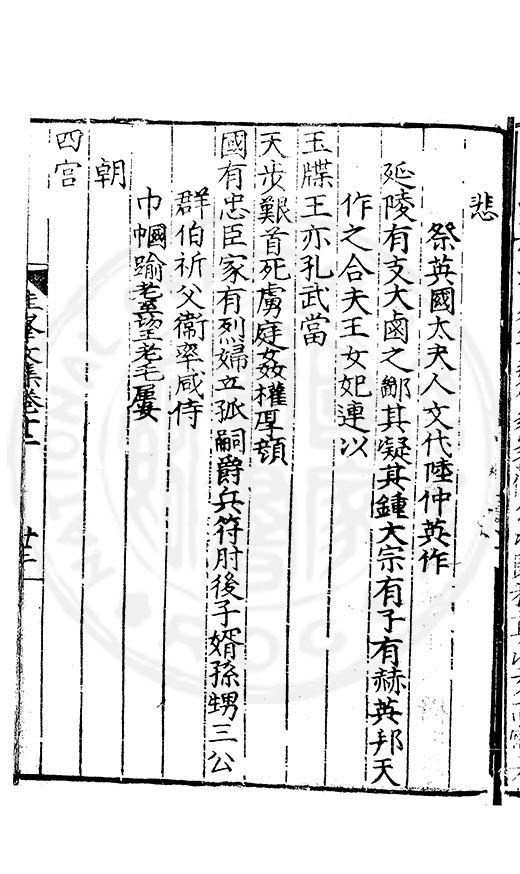 悲
祭英國太夫人文代陸仲英作
延陵有支大鹵之鄉其凝其鍾大宗有子有赫英邦天
作之合夫王女妃連以
玉牒王亦孔武當
天步艱首死虜庭姦權厚顏
國有忠臣家有烈婦立孤嗣爵兵符肘後子婿孫甥三公
群伯祈父衞率咸侍
巾幗踰耄望老毛屢
朝
四宮
圭峯文集卷十一
廿三